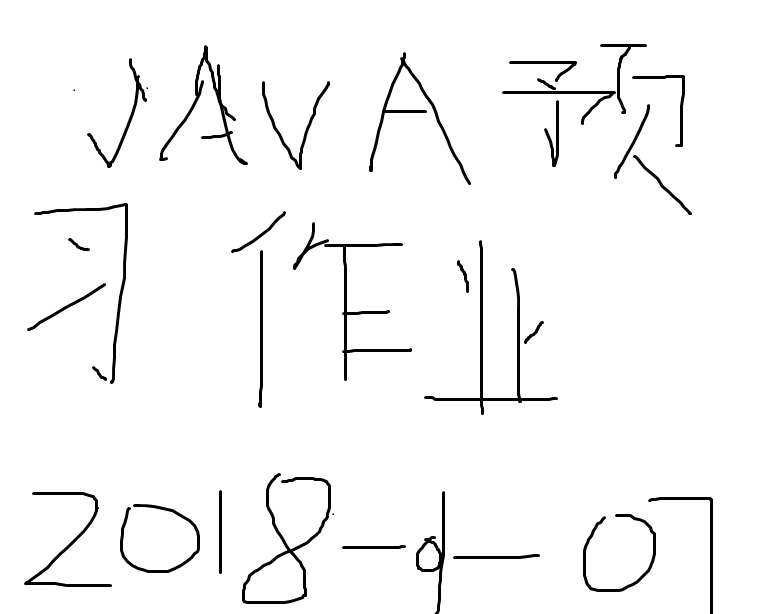 JAVA预
习作业
2018-01-07